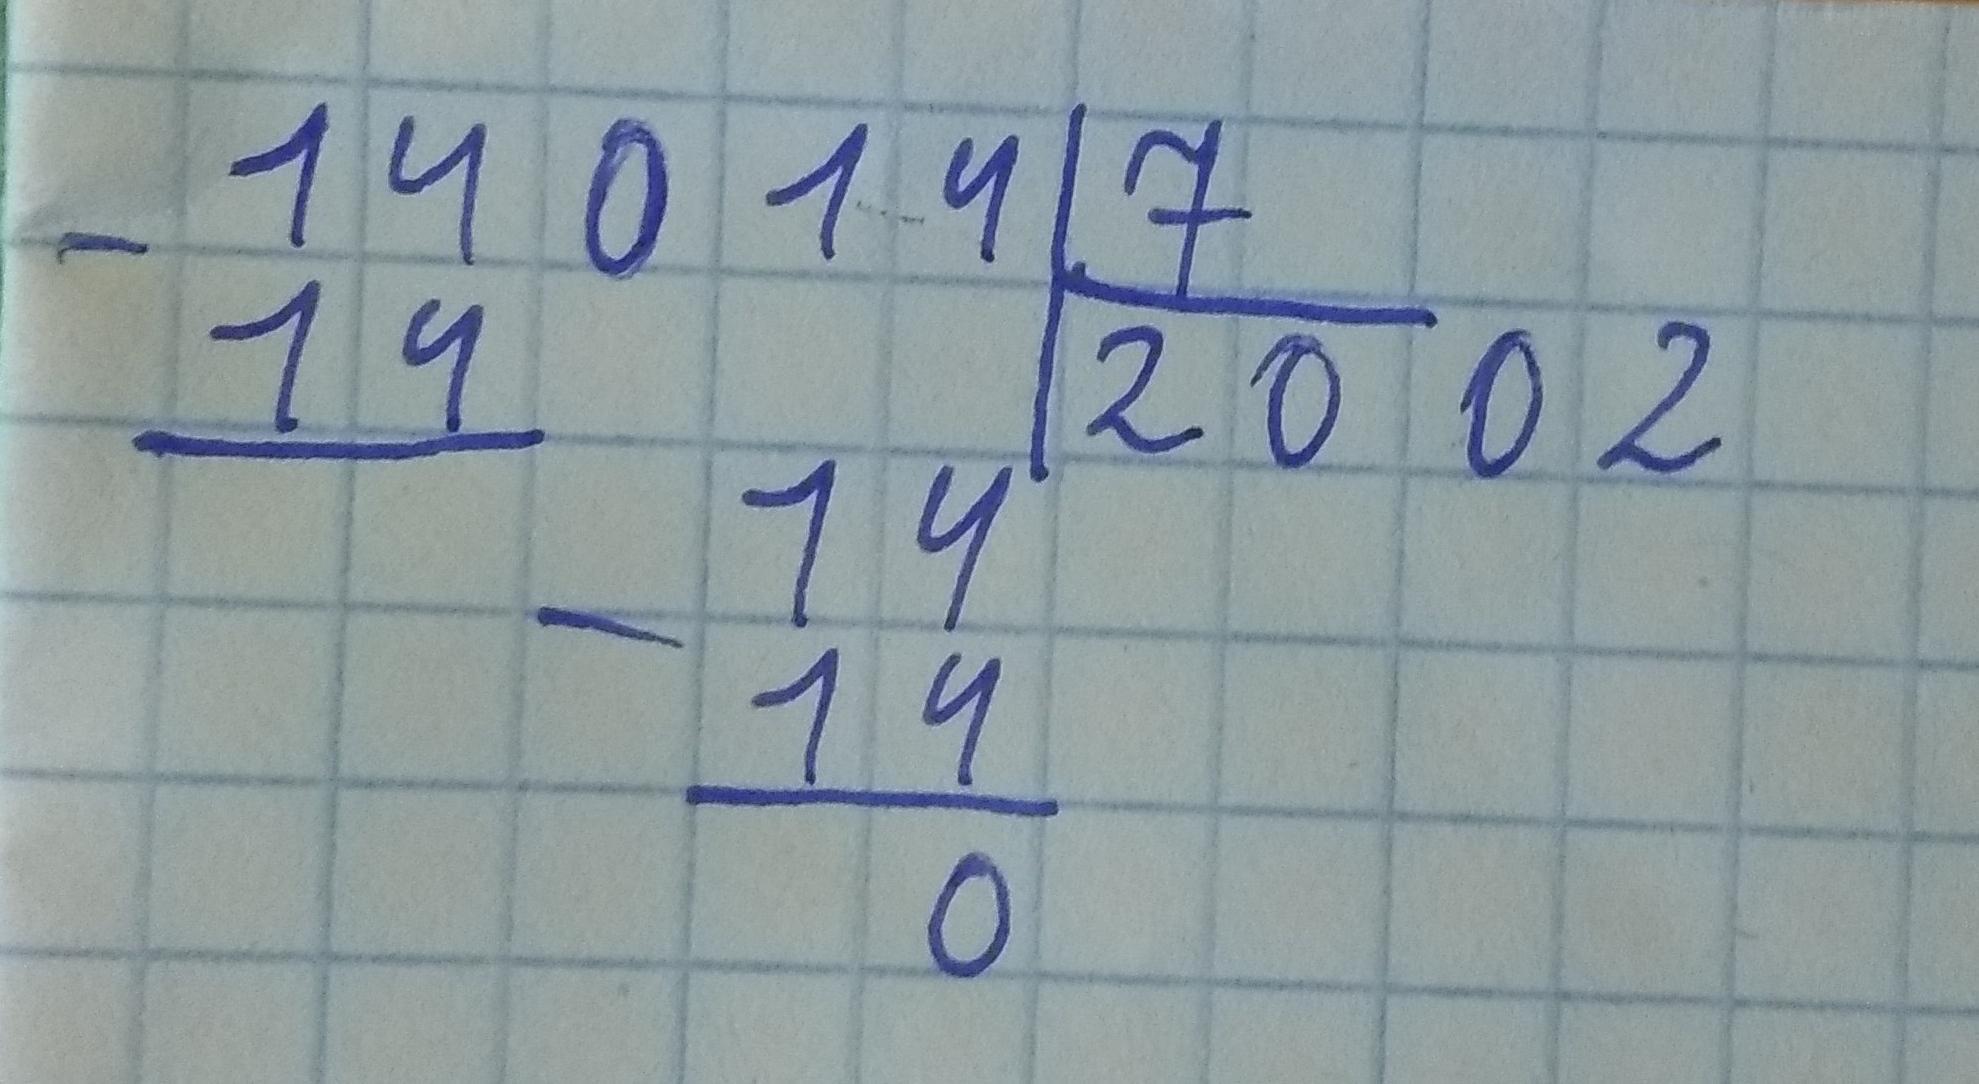 - 14014 | 7
14 | 2002
14
- 14
0